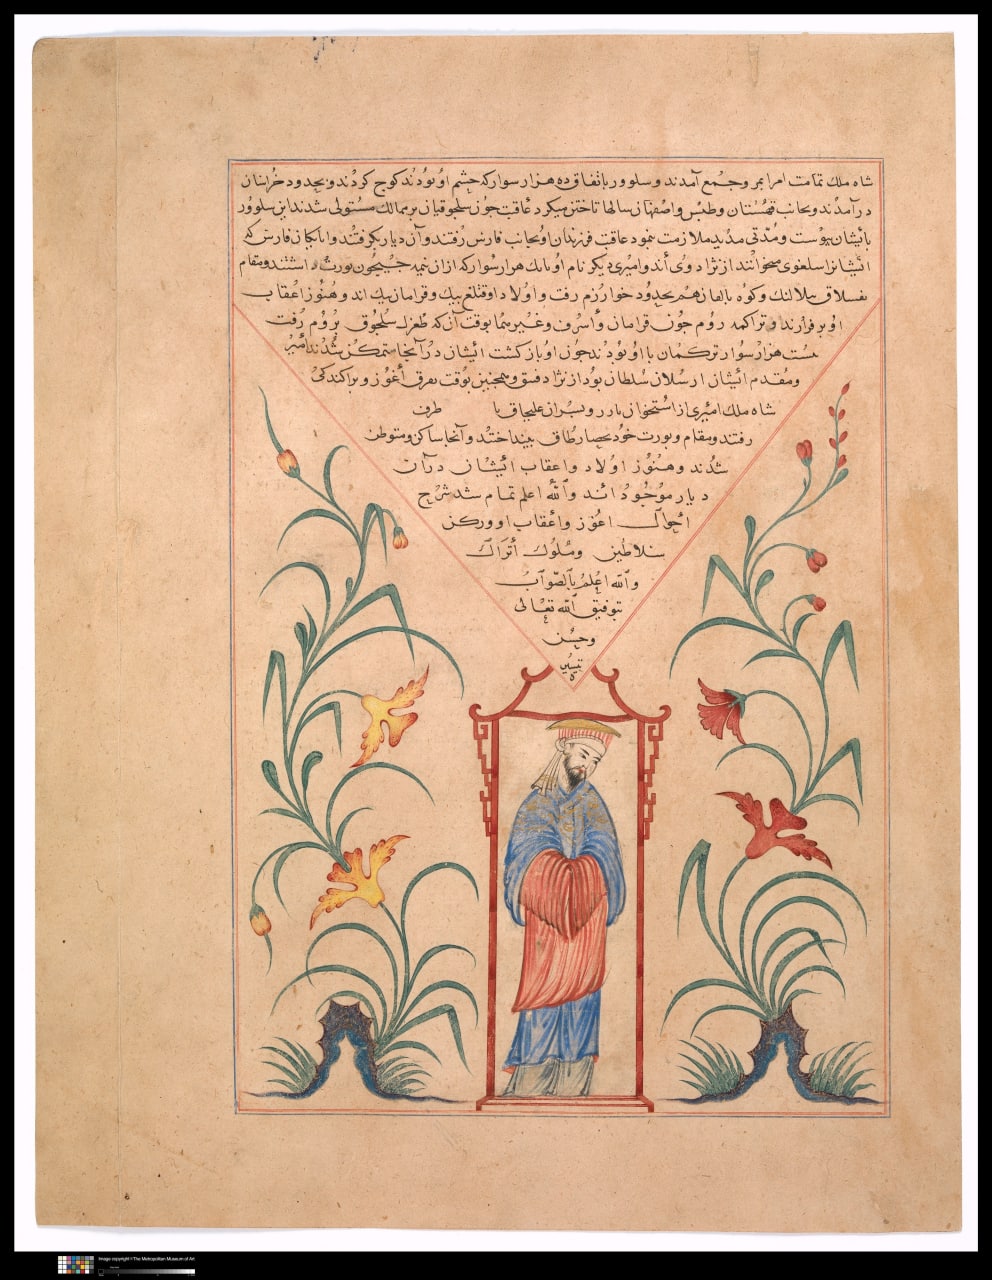 شاه ملك تمامت امرا بمرو جمع آمدند و سلوور باتفاق ده هزار سوار كه حشم او بودند كوج كردند و بحدود خراسان
درآمدند و بجانب قهستان و طبس و اصفهان سالها تاختن ميكرد عاقبت جون سلجوقيان بر ممالك مستولى شدند ابن سلوور
با ايشان پيوست و مدتى مديد ملازمت نمود عاقبت فرزندان او بجانب فارس رفتند و آن ديار بكرفتند و اتابكان فارس كه
ايشانرا سلغرى ميخوانند از نژاد وى اند و اميرى ديكر نام او با يك هزار سوار كه ازان جيحون يورت داشتند و مقام
و كوه بحدود خوارزم رفت و اولاد او قتلغ بيك و قرامان بيك اند و هنوز اعقاب
او برقرارند و تراكمه روم جون قرامان و اشرف و غيرهما بوقت آن كه طغرل سلجوق بروم رفت
بيست هزار سوار تركمان با او بودند جون او بازكشت ايشان در آنجا متمكن شدند امير
و مقدم ايشان ارسلان سلطان بود از نژاد و همجنين بوقت تفرق اغوز و پراكندكى
شاه ملك اميرى از استخوان يازر و پسران عليجاق با طرف
رفتند و مقام و يورت خود بحصار طاق بينداختند و آنجا ساكن و متوطن
شدند و هنوز اولاد و اعقاب ايشان در آن
ديار موجود اند والله اعلم تمام شد شرح
احوال اغوز و اعقاب او و ذكر
سلاطين و ملوك اتراك
والله اعلم بالصواب
بتوفيق الله تعالى
وحسن
تيسيره
Image copyright ©The Metropolitan Museum of Art